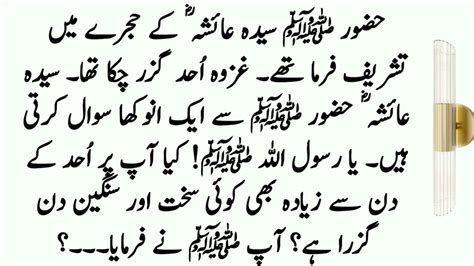 حضور ﷺ سیدہ عائشہؓ کے حجرے میں
تشریف فرما تھے۔ غزوہ اُحد گزر چکا تھا۔ سیدہ
عائشہؓ حضور ﷺ سے ایک انوکھا سوال کرتی
ہیں۔ یا رسول اللہ ﷺ! کیا آپ پر اُحد کے
دن سے زیادہ بھی کوئی سخت اور سنگین دن
گزرا ہے؟ آپ ﷺ نے فرمایا۔۔۔؟